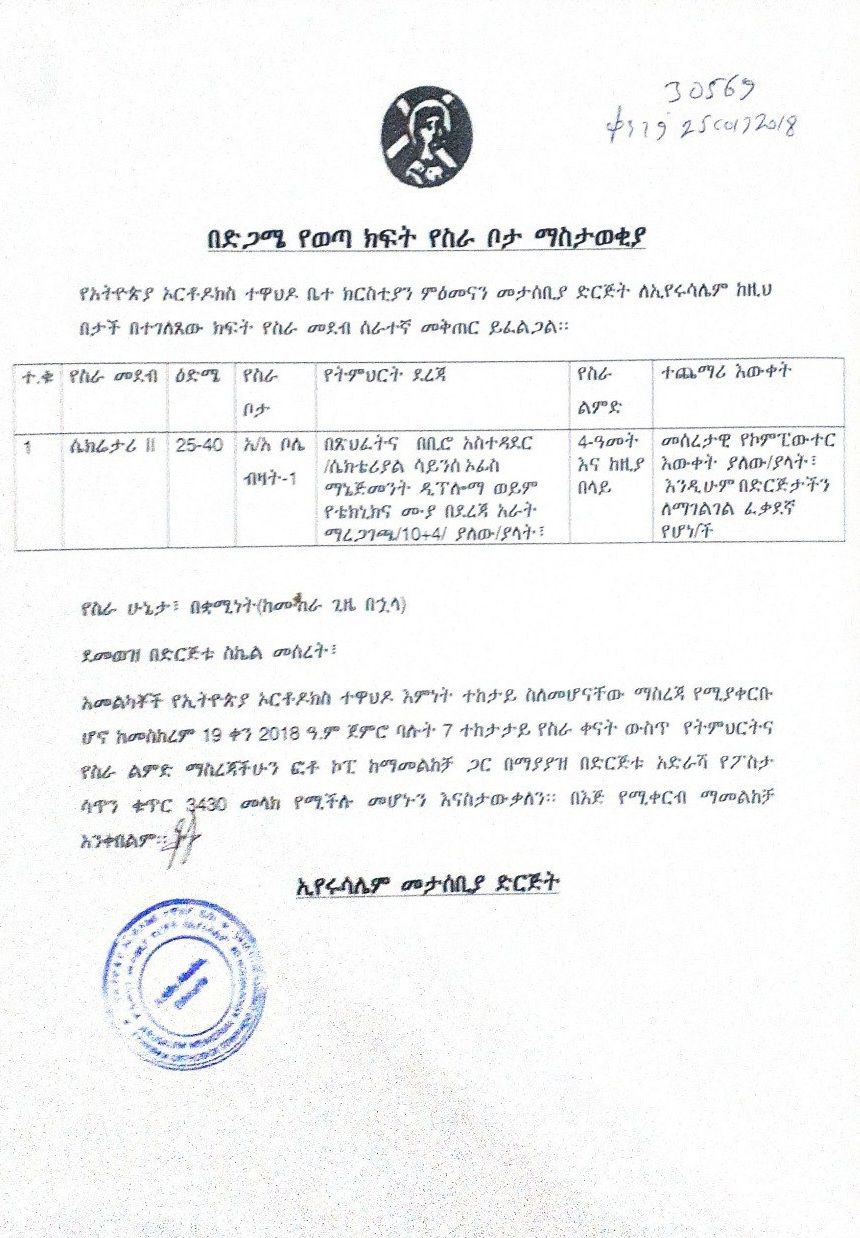 30569
በድጋሜ የወጣ ክፍት የስራ ቦታ ማስታወቂያ
የኢትዮጵያ ኦርቶዶክስ ተዋህዶ ቤተ ክርስቲያን ምዕመናን መታሰቢያ ድርጅት ለኢየሩሳሌም ከዚህ
በታች በተገለጸው ክፍት የስራ መደብ ሰራተኛ መቅጠር ይፈልጋል፡፡
ተ.ቁ የስራ መደብ ዕድሜ የስራ ቦታ የትምህርት ደረጃ የስራ ልምድ ተጨማሪ እውቀት
1 ሴክሬታሪ II 25-40 አ/አ ቦሌ ብዛት-1
በጽህፈትና በቢሮ አስተዳደር
/ሴክተሪያል ሳይንስ ኦፊስ
ማኔጅመንት ዲፕሎማ ወይም
የቴክኒክና ሙያ በደረጃ አራት
ማረጋገጫ/10+4/ ያለው/ያላት፣
4-ዓመት
እና ከዚያ
በላይ
መሰረታዊ የኮምፒውተር
እውቀት ያለው/ያላት፣
እንዲሁም በድርጅታችን
ለማገልገል ፈቃደኛ
የሆነ/ች
የስራ ሁኔታ፣ በቋሚነት(ከሙከራ ጊዜ በኋላ)
ደመወዝ በድርጅቱ ስኬል መሰረት፣
አመልካቾች የኢትዮጵያ ኦርቶዶክስ ተዋህዶ እምነት ተከታይ ስለመሆናቸው ማስረጃ የሚያቀርቡ
ሆኖ ከመስከረም 19 ቀን 2018 ዓ.ም ጀምሮ ባሉት 7 ተከታታይ የስራ ቀናት ውስጥ የትምህርትና
የስራ ልምድ ማስረጃችሁን ፎቶ ኮፒ ከማመልከቻ ጋር በማያያዝ በድርጅቱ አድራሻ የፖስታ
ሳጥን ቁጥር 3430 መላክ የሚችሉ መሆኑን እናስታውቃለን፡፡ በእጅ የሚቀርብ ማመልከቻ
አንቀበልም፡፡
ኢየሩሳሌም መታሰቢያ ድርጅት